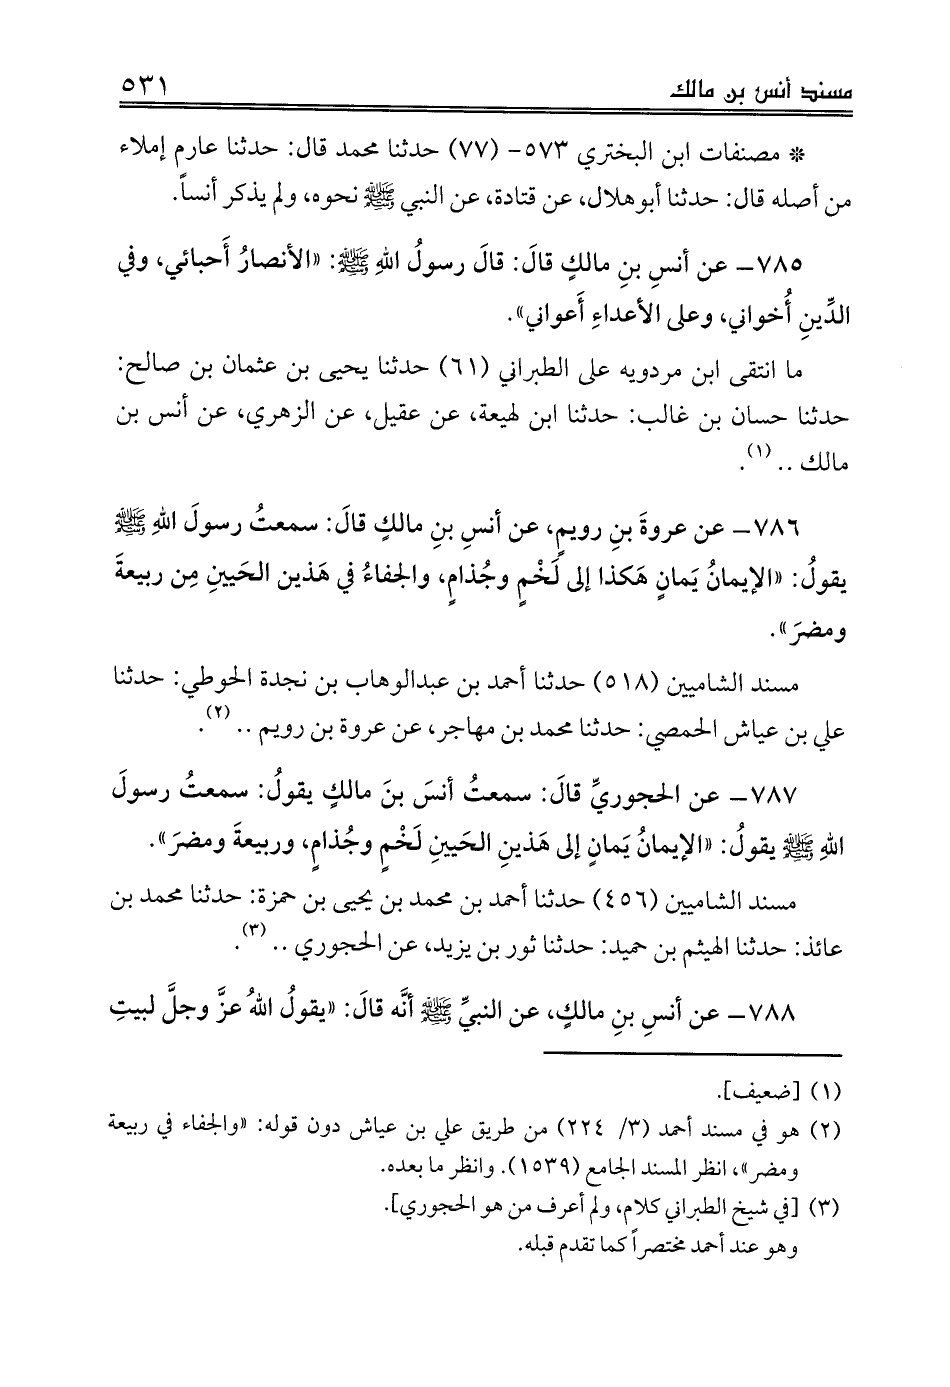 مسند أنس بن مالك ٥٣١
* مصنفات ابن البختري ٥٧٣- (٧٧) حدثنا محمد قال: حدثنا عارم إملاء
من أصله قال: حدثنا أبوهلال، عن قتادة، عن النبي ﷺ نحوه، ولم يذكر أنساً.
٧٨٥- عن أنسِ بنِ مالكٍ قالَ: قالَ رسولُ اللهِ ﷺ: «الأنصارُ أَحبائي، وفي
الدِّينِ أُخواني، وعلى الأعداءِ أَعواني».
ما انتقى ابن مردويه على الطبراني (٦١) حدثنا يحيى بن عثمان بن صالح:
حدثنا حسان بن غالب: حدثنا ابن لهيعة، عن عقيل، عن الزهري، عن أنس بن
مالك .. (١).
٧٨٦- عن عروةَ بنِ رويمٍ، عن أنسِ بنِ مالكٍ قالَ: سمعتُ رسولَ اللهِ ﷺ
يقولُ: «الإيمانُ يَمانٍ هَكذا إلى لَخْمٍ وجُذامٍ، والجفاءُ في هَذين الحَيينِ مِن ربيعةَ
ومضرَ».
مسند الشاميين (٥١٨) حدثنا أحمد بن عبدالوهاب بن نجدة الحوطي: حدثنا
علي بن عياش الحمصي: حدثنا محمد بن مهاجر، عن عروة بن رويم .. (٢).
٧٨٧- عن الحجوريِّ قالَ: سمعتُ أنسَ بنَ مالكٍ يقولُ: سمعتُ رسولَ
اللهِ ﷺ يقولُ: «الإيمانُ يَمانٍ إلى هَذينِ الحَيينِ لَخْمٍ وجُذامٍ، وربيعةَ ومضرَ».
مسند الشاميين (٤٥٦) حدثنا أحمد بن محمد بن يحيى بن حمزة: حدثنا محمد بن
عائذ: حدثنا الهيثم بن حميد: حدثنا ثور بن يزيد، عن الحجوري .. (٣).
٧٨٨- عن أنسِ بنِ مالكٍ، عن النبيِّ ﷺ أنَّه قالَ: «يقولُ اللهُ عزَّ وجلَّ لبيتِ
(١) [ضعيف].
(٢) هو في مسند أحمد (٣/ ٢٢٤) من طريق علي بن عياش دون قوله: «والجفاء في ربيعة
ومضر»، انظر المسند الجامع (١٥٣٩). وانظر ما بعده.
(٣) [في شيخ الطبراني كلام، ولم أعرف من هو الحجوري].
وهو عند أحمد مختصراً كما تقدم قبله.